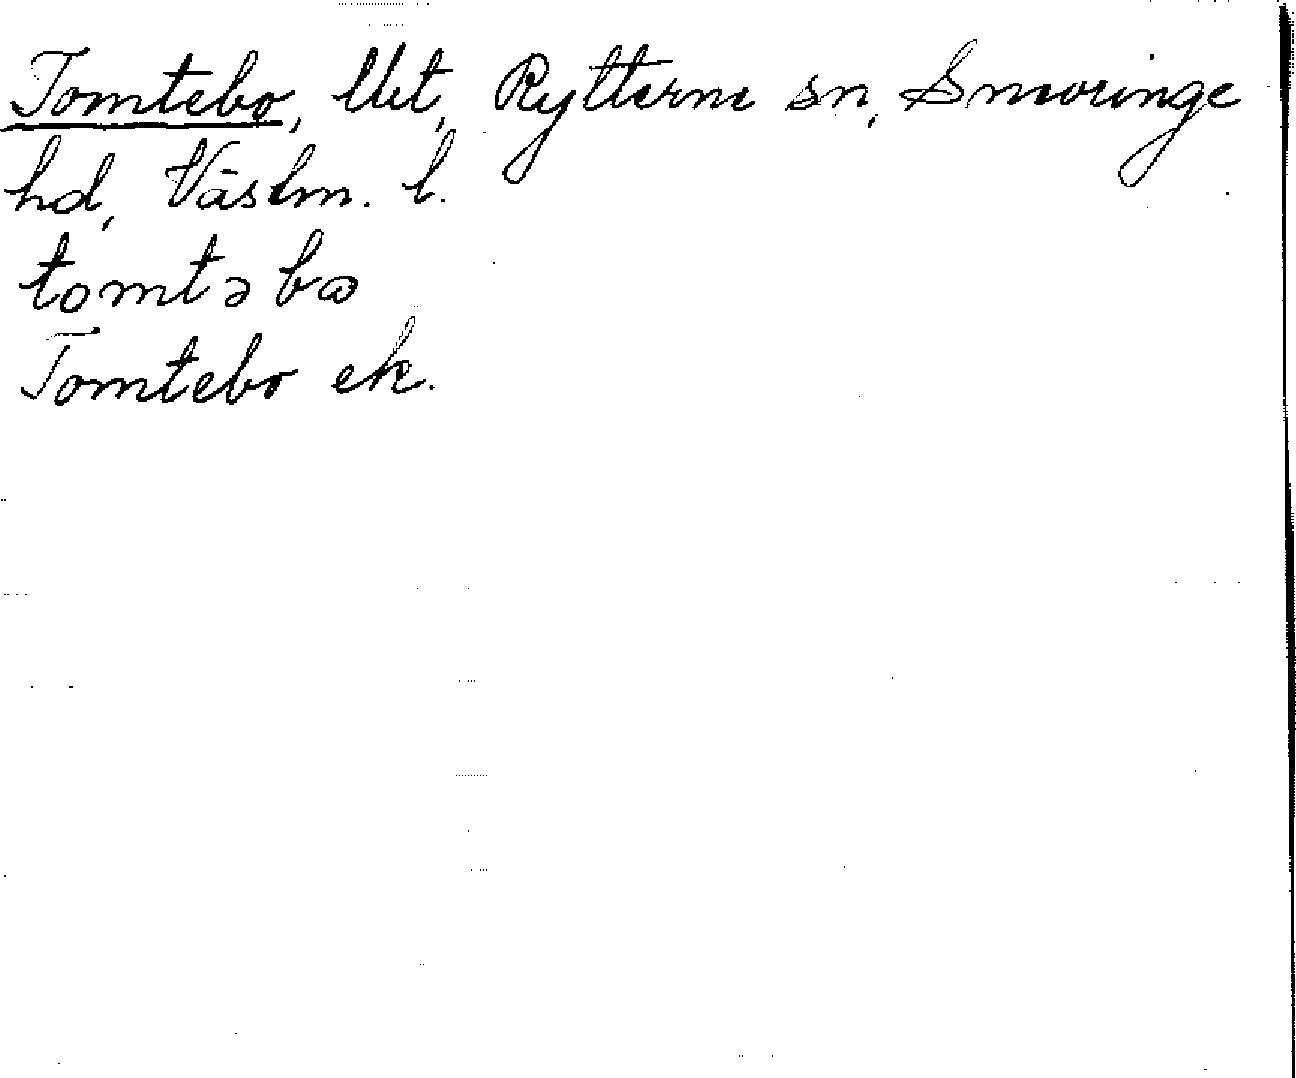 Tomtebo, Uet, Rytterne sn, Snevringe
hd, Västm. l.
tomtəbω
Tomtebo ek.